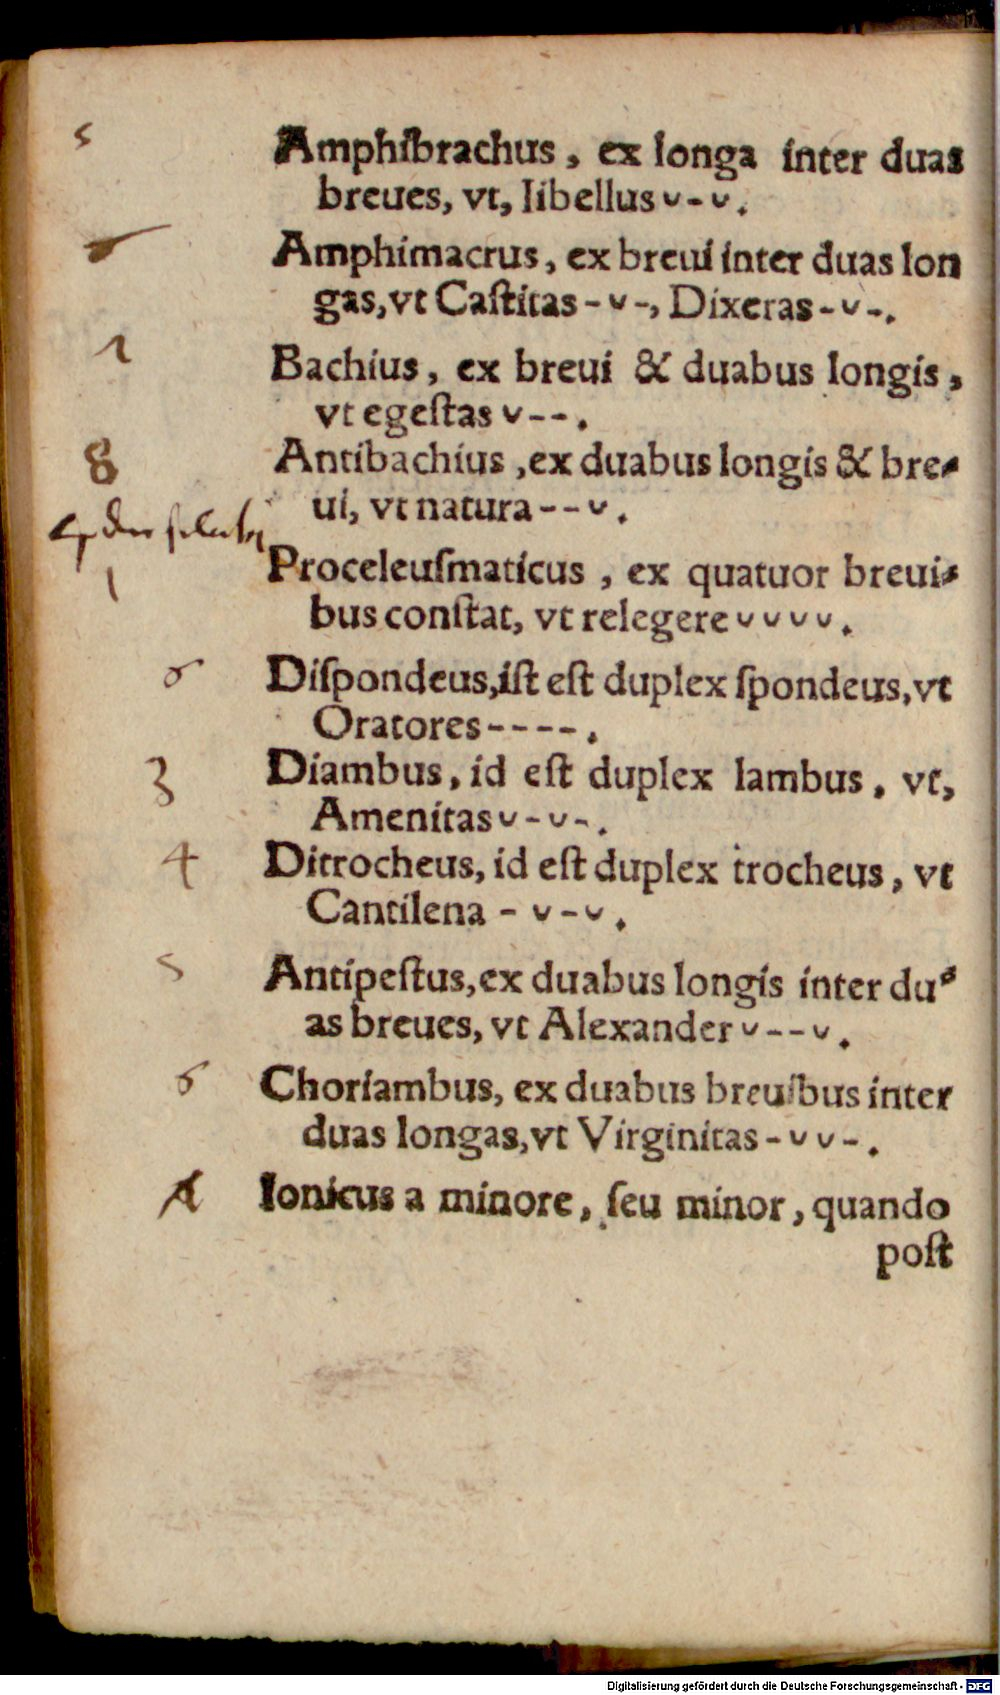 5 Amphibrachus, ex longa inter duas
breues, vt, libellus ᴗ - ᴗ.
Amphimacrus, ex breui inter duas lon
gas, vt Caſtitas - ᴗ -, Dixeras - ᴗ -.
Bachius, ex breui & duabus longis,
vt egeſtas ᴗ - -.
8 Antibachius, ex duabus longis & bre-
ui, vt natura - - ᴗ.
1 Proceleuſmaticus, ex quatuor breui-
bus conſtat, vt relegere ᴗ ᴗ ᴗ ᴗ.
Diſpondeus, iſt eſt duplex ſpondeus, vt
Oratores - - - -.
3 Diambus, id eſt duplex Iambus, vt,
Amenitas ᴗ - ᴗ -.
4 Ditrocheus, id eſt duplex trocheus, vt
Cantilena - ᴗ - ᴗ.
5 Antipeſtus, ex duabus longis inter du-
as breues, vt Alexander ᴗ - - ᴗ.
6 Choriambus, ex duabus breuibus inter
duas longas, vt Virginitas - ᴗ ᴗ -.
Ionicus a minore, ſeu minor, quando
poſt
Digitalisierung gefördert durch die Deutsche Forschungsgemeinschaft - DFG